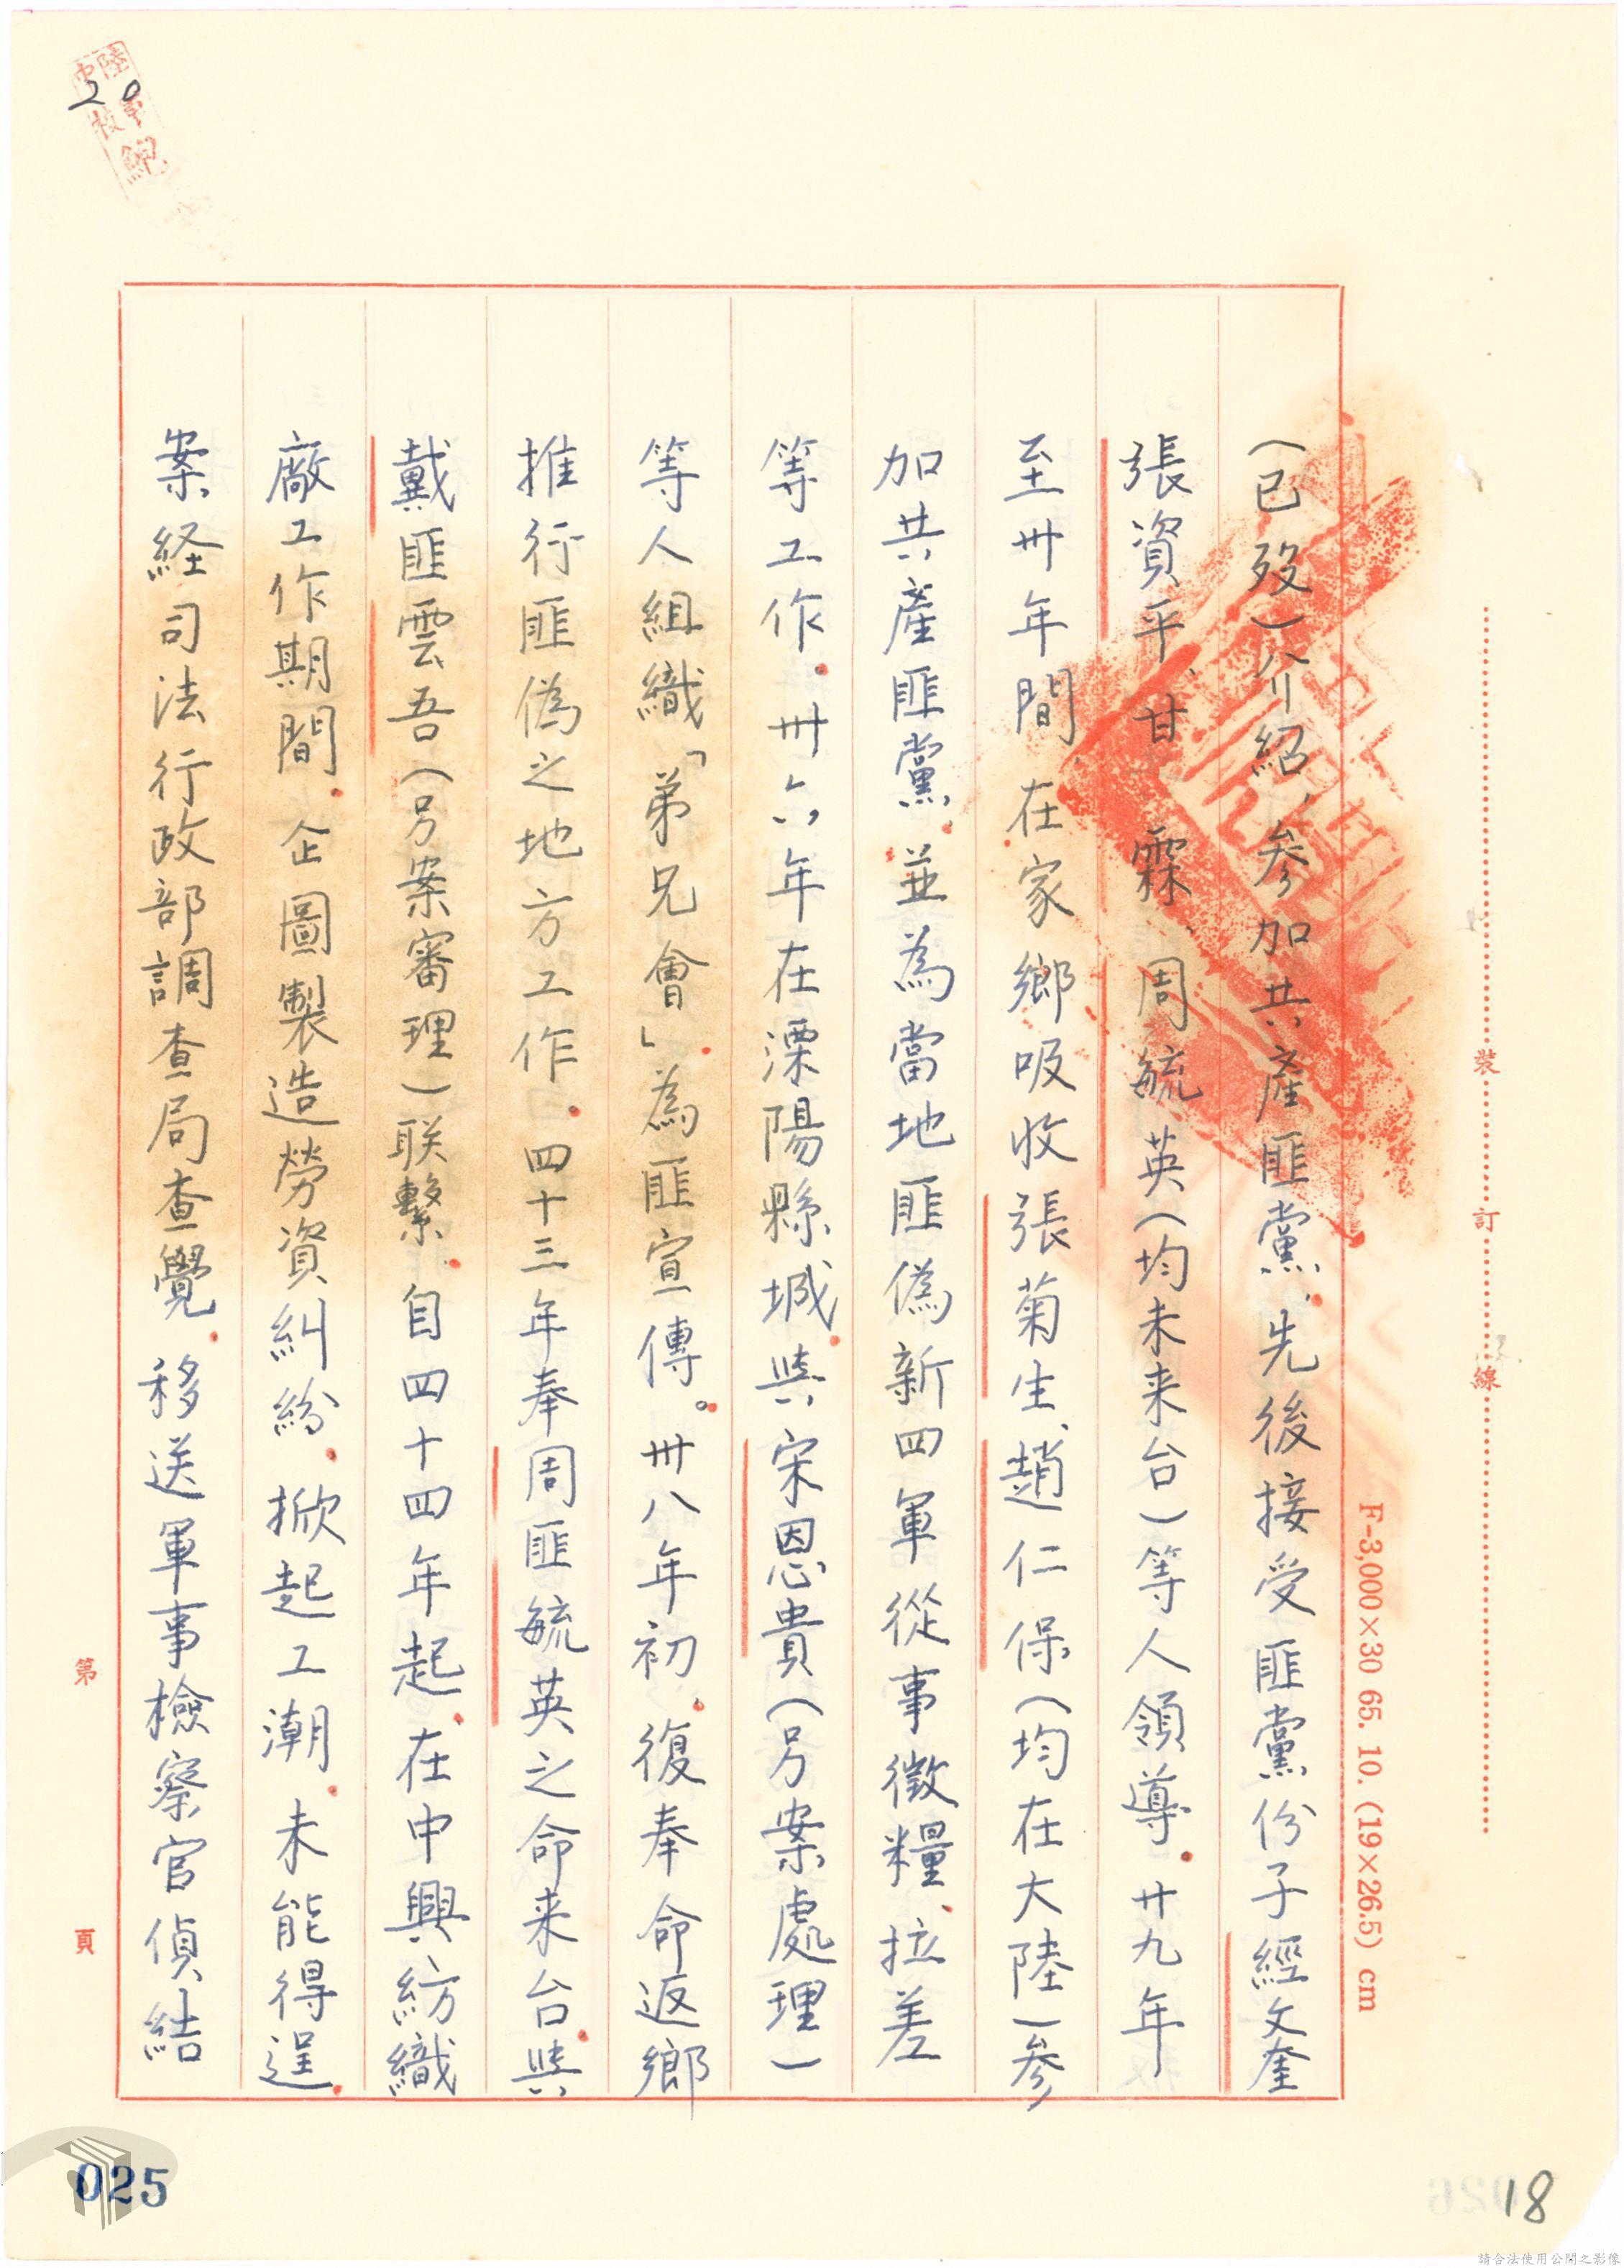 (已歿)介紹、參加共產匪黨、先後接受匪黨份子經文奎
張資平、甘霖、周毓英(均未来台)等人領導.廿九年
至卅年間、在家鄉吸收張菊生、趙仁保(均在大陸)參
加共產匪黨、並為當地匪偽新四軍從事徵糧、拉差
等工作.卅六年在溧陽縣城與宋恩貴(另案處理)
等人組織「弟兄會」為匪宣傳。卅八年初、復奉命返鄉
推行匪偽之地方工作.四十三年奉周匪毓英之命来台與
戴匪雲吾(另案審理)联繫.自四十四年起、在中興紡織
廠工作期間.企圖製造勞資糾紛.掀起工潮.未能得逞.
案経司法行政部調查局查覺.移送軍事檢察官偵結
20
裝
訂
線
F-3,000×30 65. 10. (19×26.5) cm
第
頁
025
18
請合法使用公開之影像